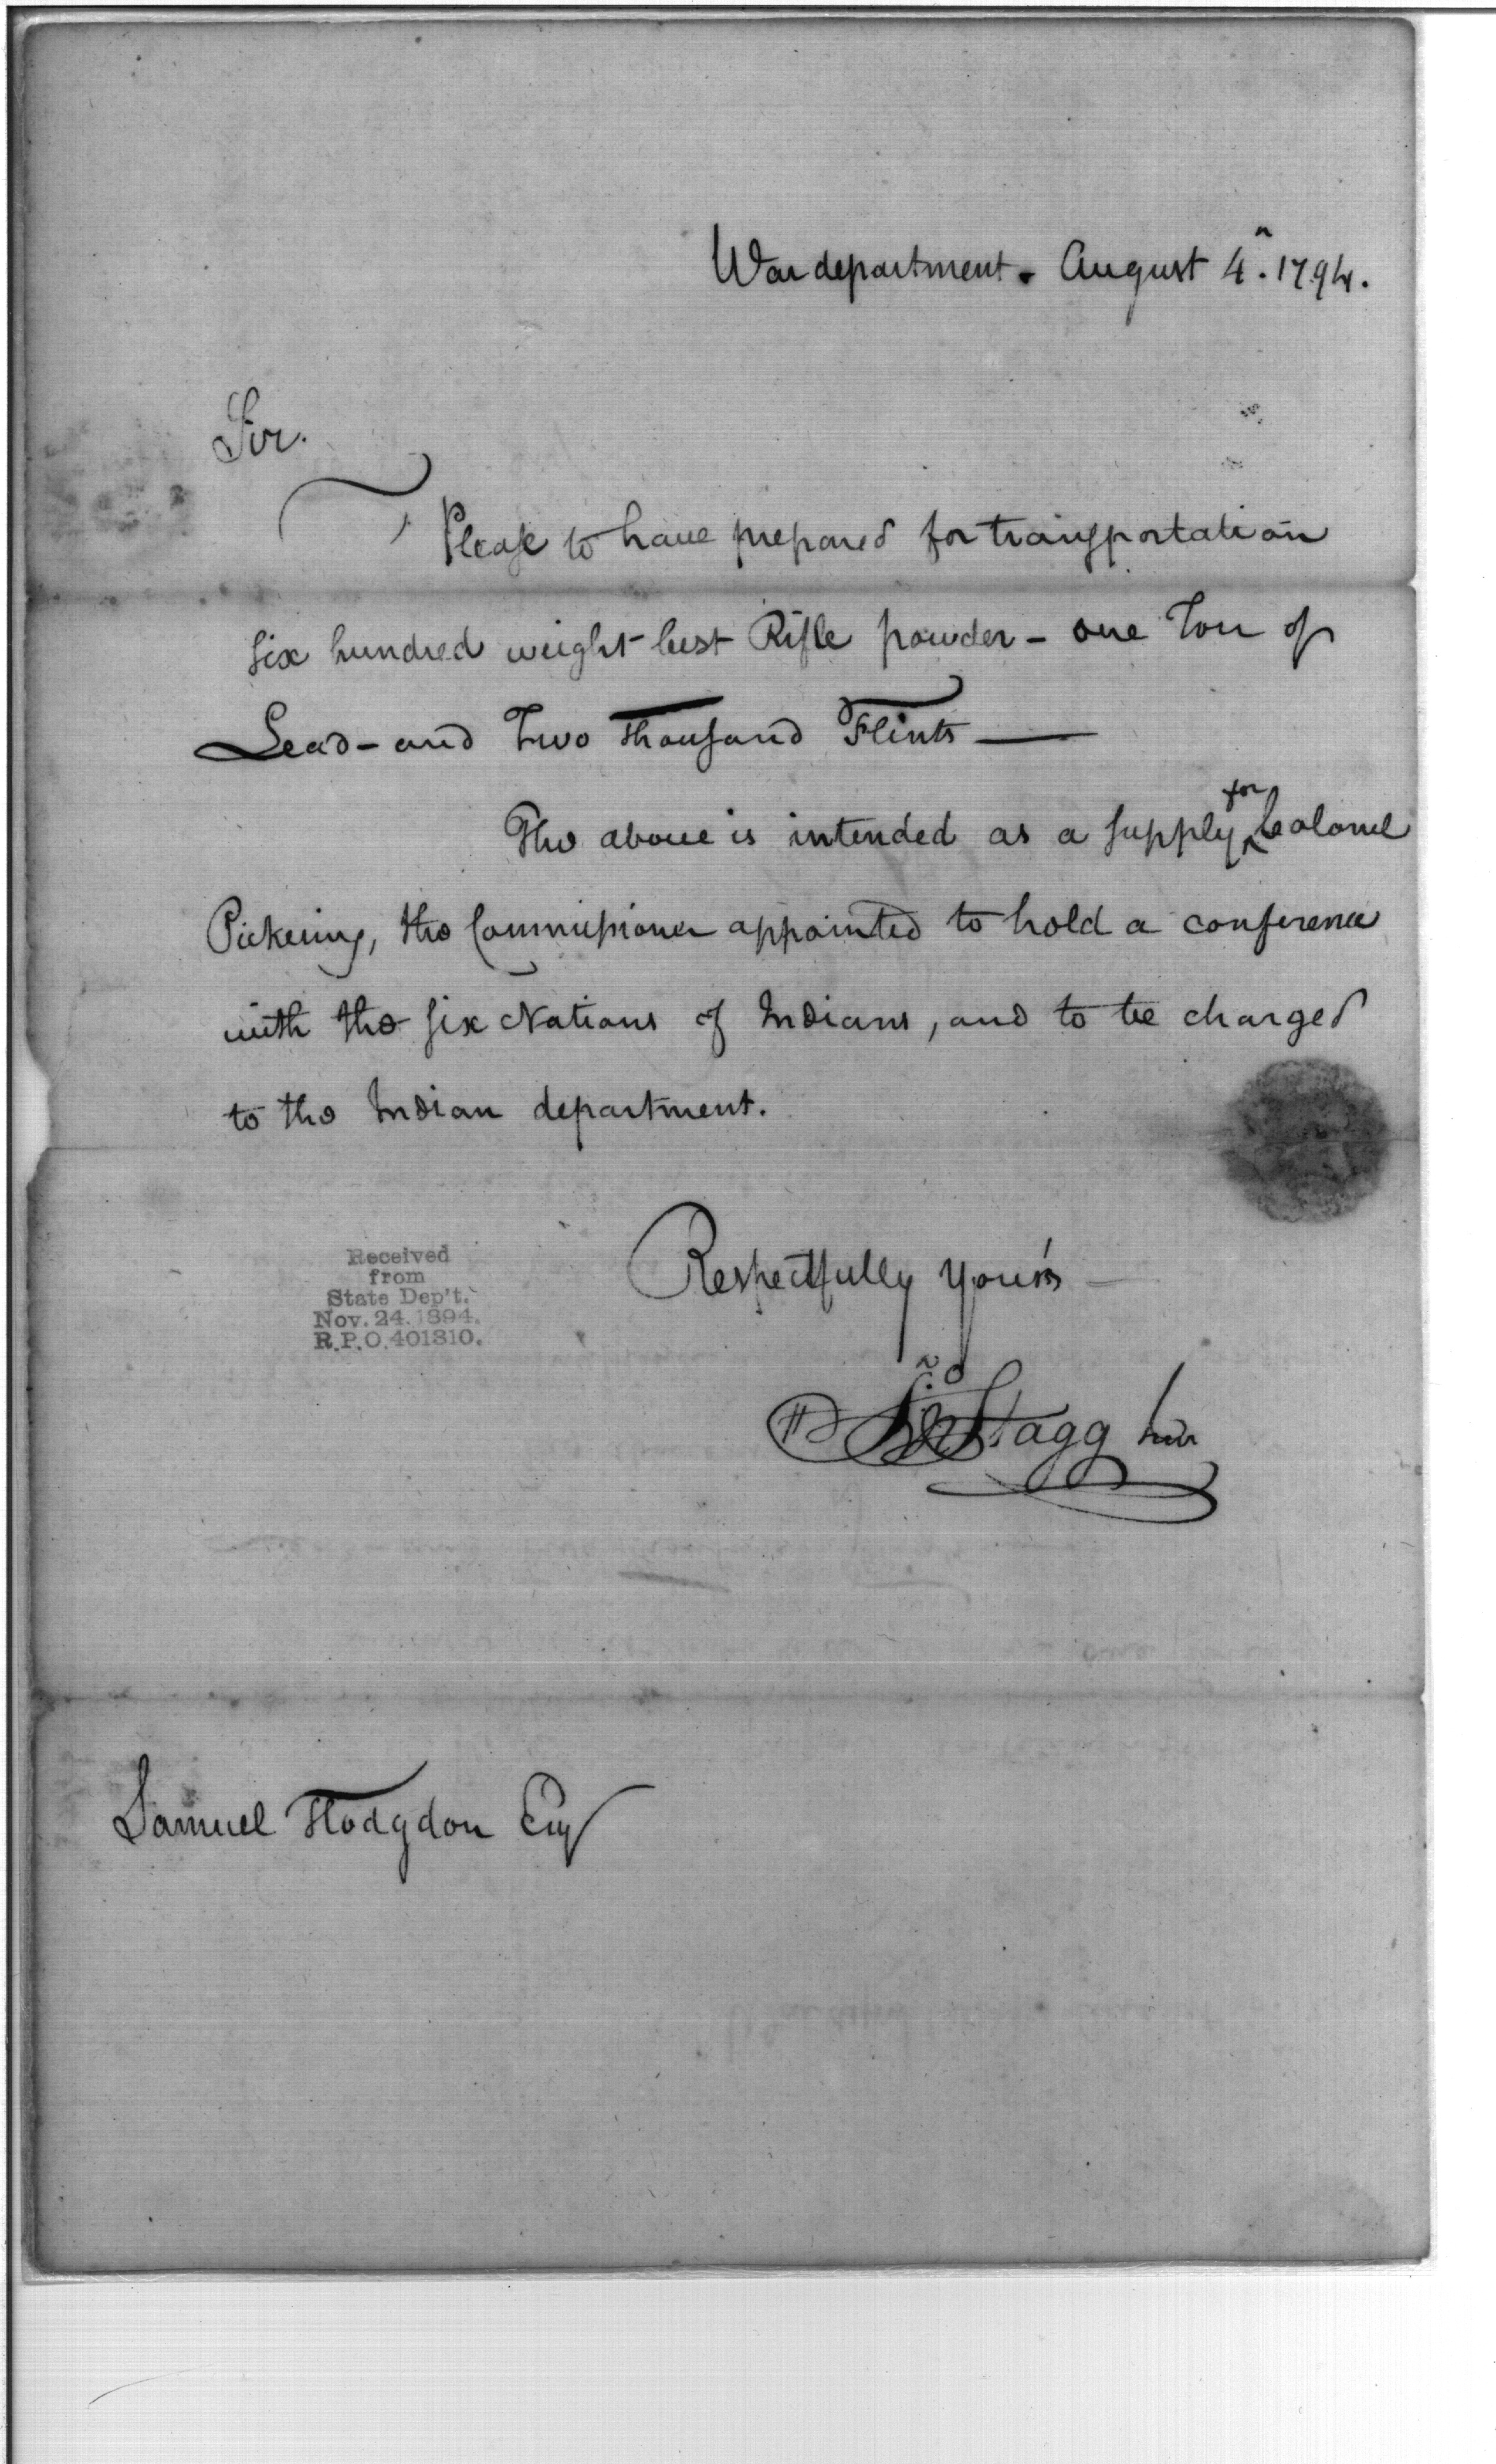 War department. August 4. 1794.
Sir.
Please to have prepared for transportation
six hundred weight best Rifle powder - one Ton of
Lead - and Two Thousand Flints —
The above is intended as a supply for Colonel
Pickering, the Commissioner appointed to hold a conference
with the six Nations of Indians, and to be charged
to the Indian department.
Respectfully Yours
Received
from
State Dep't.
Nov. 24. 1894.
R.P.O. 401310.
Jno Stagg Junr
Samuel Hodgdon Esqr